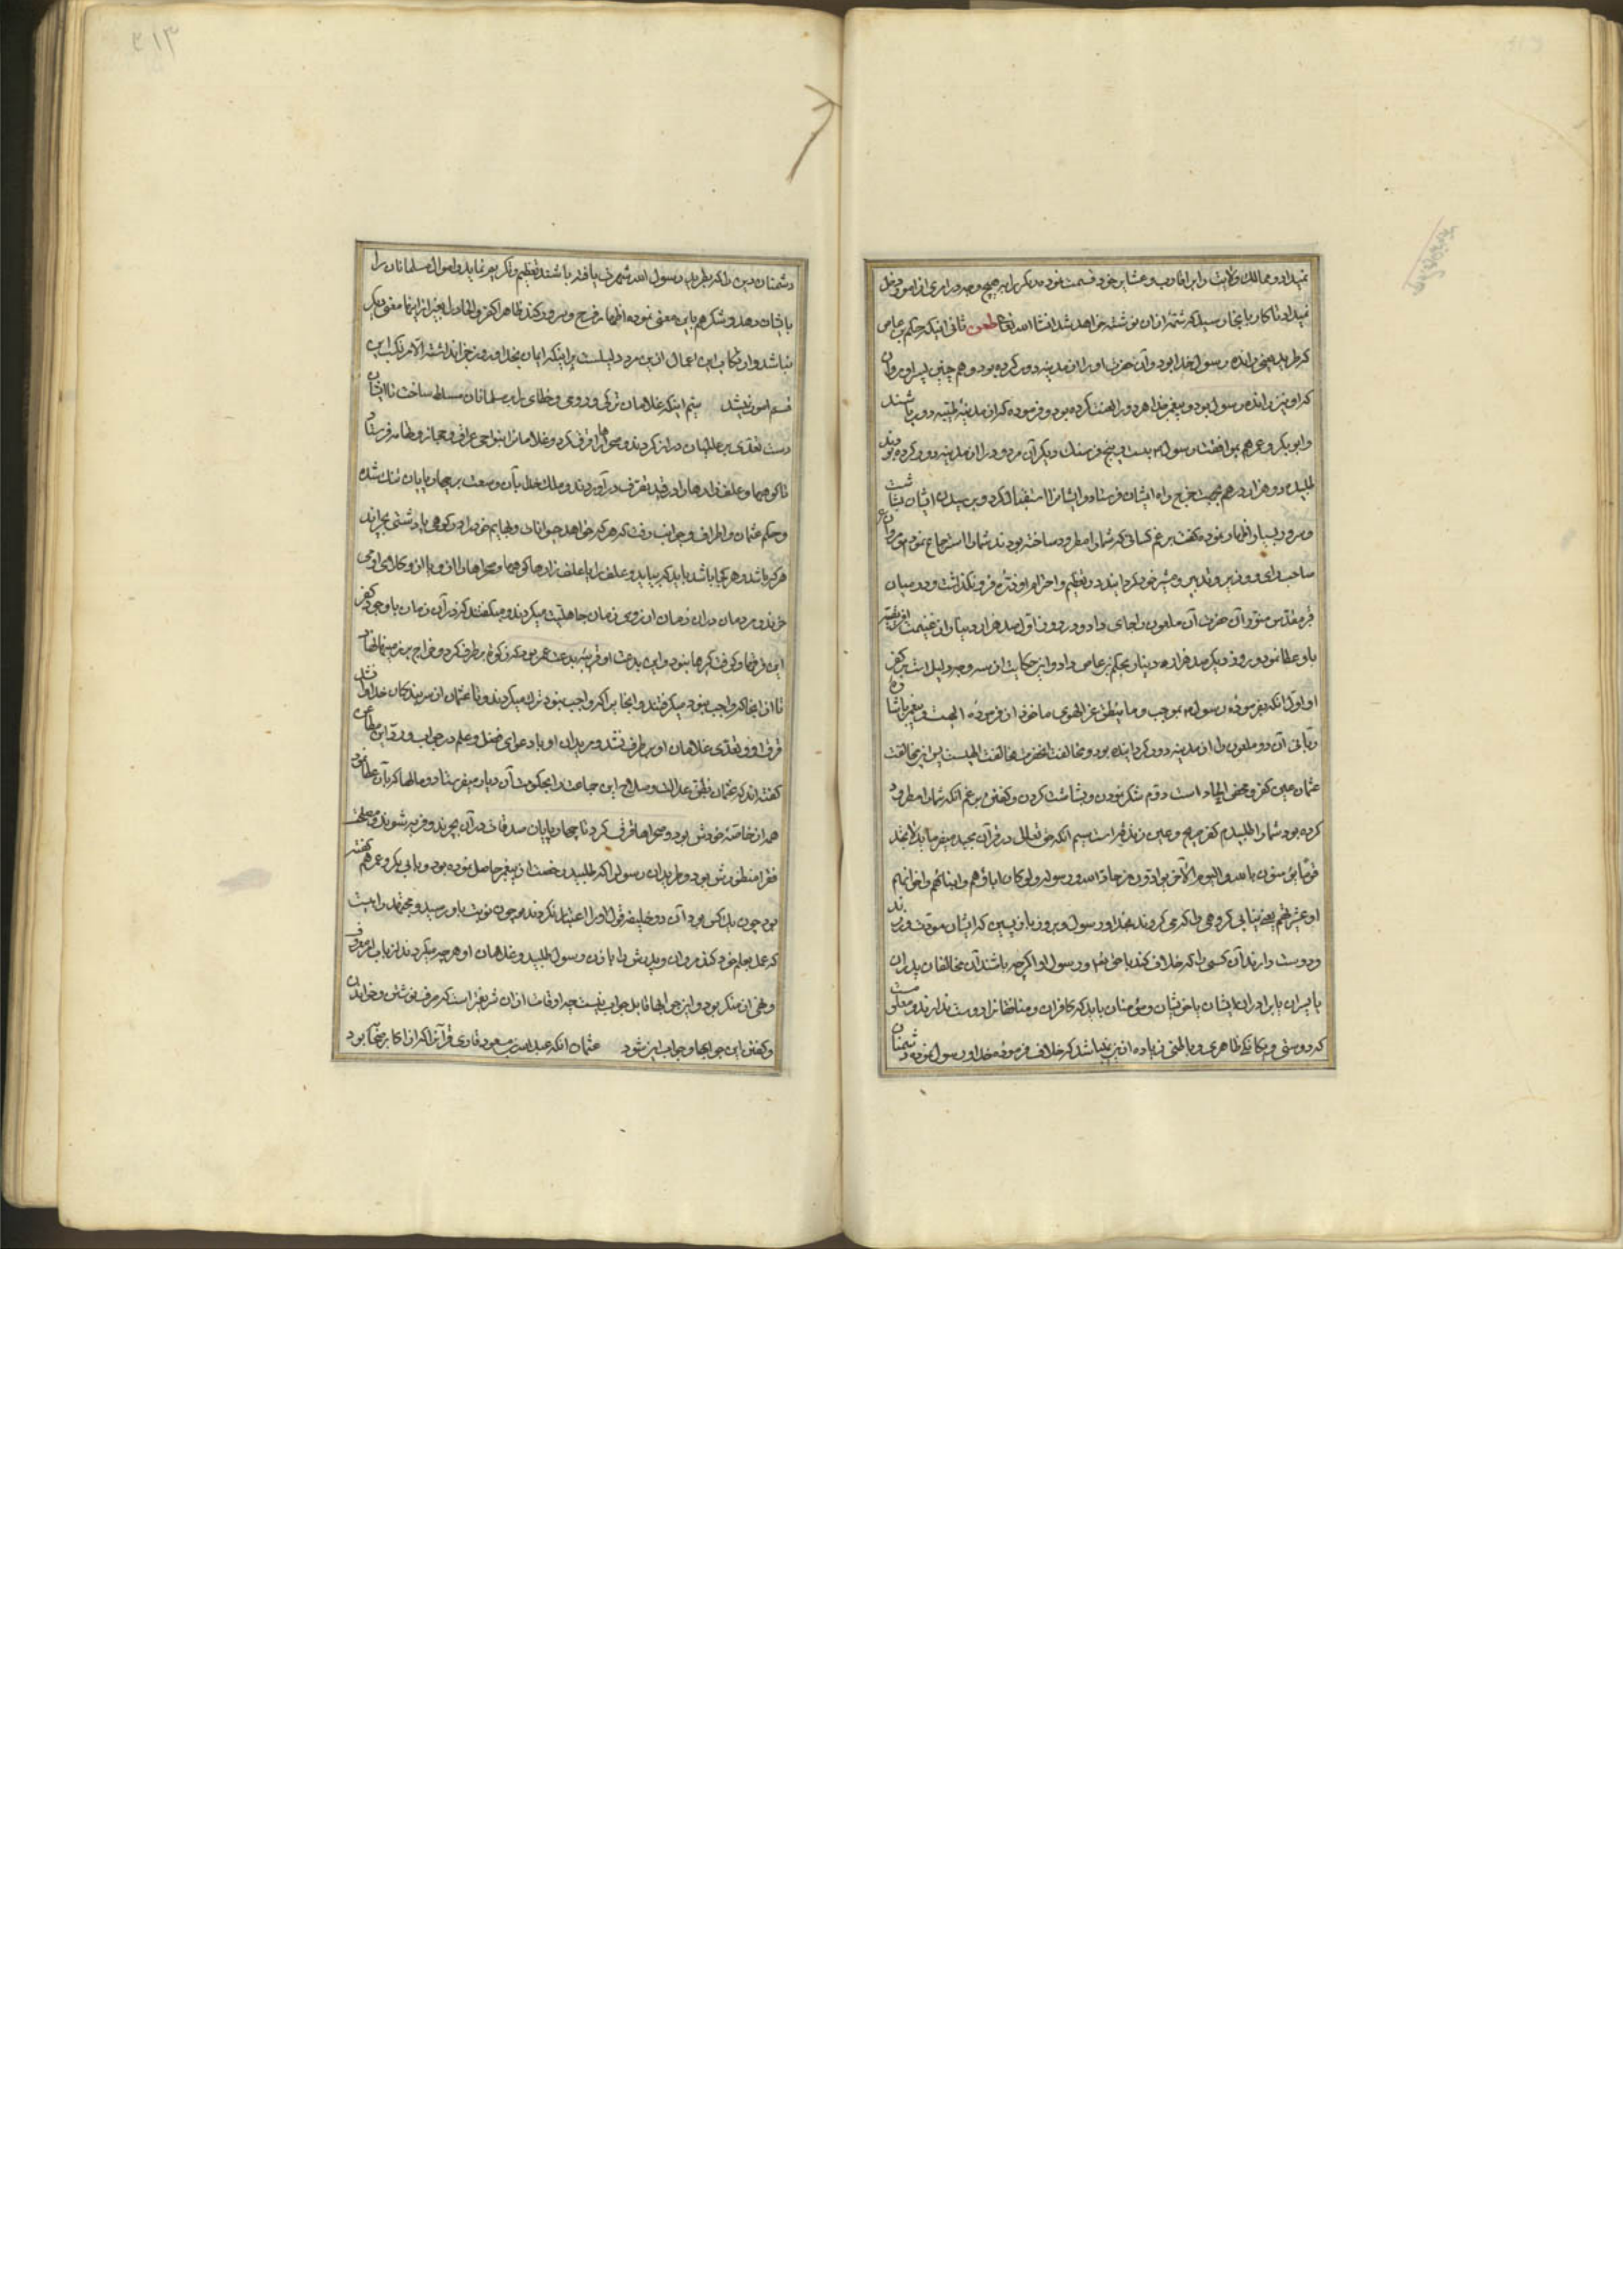 نمیداد و ممالک ولایت را بر اقارب و عشایر خود قسمت نموده دیگر را بهیچ وجه در امری از امور دخل
نمیداد تا کار بانجا رسید که شمه از آن نوشته خواهد شد انشاء الله تعالی طعن ثانی اینکه حکم بن عاص
که طرید یعنی رانده رسول خدا بود و آن حضرت او را از مدینه دور کرده بود و همچنین پسر او مروان
که او نیز رانده رسول بود و پیغمبر خدا هر دو را لعنت کرده بود و فرموده که از مدینه طیبه دور باشند
و ابوبکر و عمر هم بموافقت رسول بیست و پنج فرسنگ دیگر آن مردود را از مدینه دور کرده بودند
طلبیده و هزار درهم بجهت خرج راه ایشان فرستاد و ایشانرا استقبال کرد و برسیدن ایشان بشاشت
و سرور بسیار اظهار نموده گفت برغم کسانی که شما را مطرود ساخته بودند شما را استرجاع نمودم و مروان را
صاحب رای و وزیر و تدبیر و مشیر خود گردانید در تعظیم و احترام او ذره فرو نگذاشت و در میان
قبر مقدس منور آن حضرت آن ملعون را جای داد و در روز اول صد هزار دینار از غنیمت افریقیه
باو عطا نمود و روز دیگر صد هزار دینار بحکم بن عاص داد و این حکایت از سه وجه دلیل است بر کفر
او اول آنکه بفرموده رسول بموجب و ما ینطق عن الهوی ماخوذ از فرموده الهیست و پیغمبر باشاره
ربانی آن دو ملعون را از مدینه دور گردانیده بود و مخالفت آنحضرت مخالفت الهیست پس این مخالفت
عثمان عین کفر و محض الحاد است دوم شکر نمودن و بشاشت کردن و گفتن برغم آنکه شما را مطرود
کرده بود شما را طلبیدم کفر صریح و عین زندقه است سیم آنکه حق تعالی در قرآن مجید میفرماید لا تجد
قوما یؤمنون بالله و الیوم الآخر یوادون من حاد الله و رسوله ولو کان اباؤهم و ابناءهم و اخوانهم
او عشیرتهم یعنی نیابی گروهی را که می گروند بخدا و رسول و بروز بازپسین که ایشان مودت ورزند
و دوست دارند آن کسی را که خلاف کند با خدا و رسول او اگرچه باشند آن مخالفان پدران
یا پسران یا برادران ایشان یا خویشان و مؤمنان باید که کافران و منافقانرا دوست ندارند و معلومست
که دوستی و یگانگی ظاهری و باطنی زیاده از این نمیباشد که خلاف فرموده خدا و رسول نموده دشمنان
دشمنان دین را که طرید رسول الله شهرت یافته باشند تعظیم و تکریم نماید و اموال مسلمانان را
بایشان دهد و شکر هم باین معنی نموده اظهار فرح و سرور کند ظاهرا کفر و الحاد را بغیر از اینها معنی دیگر
نباشد و ارتکاب این اعمال از این مرد دلیلست بر اینکه ایمان بخدا و روز جزا نداشته الا مرتکب این
قسم امور نمیشد سیم اینکه غلامان ترکی و رومی و خطای را بر مسلمانان مسلط ساخت تا ایشان
دست تعدی بر عالمیان دراز کردند و صحراها را قرق کرده و غلامانرا بنواحی عراق و حجاز و طایف فرستاد
تا کوهها و علف زارها را در قید تصرف در آوردند و ملک خدا بآن وسعت بر چهارپایان تنگ شده
و حکم عثمان و اطراف و جوانب رفت که هر که خواهد حیوانات و بهایم خود را در کوهی یا دشتی بچراند
هر که باشد و هر کجا باشد باید که بیاید و علف را یا علف زارها کوهها و صحراها را از و یا از وکلای او می
خرند و مردمان در آن زمان از روی زمان جاهلیت میکردند و میگفتند که در آن زمان با وجود کفر
این قرقها و گرفت گیرها نبود و این بدعت او قرینه بدعت عمر بود
تا از آنجا که واجب نبود میگرفتند و آنجا که واجب بود ترک میکردند و تا عثمان از سر بندگان خدا وا نشد
قرق او و تعدی غلامان او بر طرف نشد و مریدان او با دعوای فضل و علم در جواب و رد این مطاعن
گفته اند که عثمان بطریق عدالت و صلاح این جماعت را بحکومت آن دیار میفرستاد و مالها که بآن عطا نمود
همه از خاصه خودش بود و صحراها قرق کرد تا چهارپایان صدقات در آن بچرند و فربه شوند و مصلحت
فقرا منظورش بود و طریدان رسول را که طلبید رخصت از پیغمبر حاصل نموده بود و بابی بکر و عمر هم گفته
بود چون یک کس بود آن دو خلیفه قول او را اعتبار نکردند و چون نوبت باو رسید و مجتهد را میست
که عمل بعلم خود کند مروان و پدرش را باذن رسول طلبید و غلامان او هر چه میکردند از باب امر معروف
و نهی از منکر بود و این جوابها قابل جواب نیست چه اوقات از آن شریفتر است که صرف نوشتن و خواندن
و گفتن این جوابها و جواب این شود عثمان آنکه عبد الله بن مسعود قاری قرآنرا که از اکابر صحابه بود